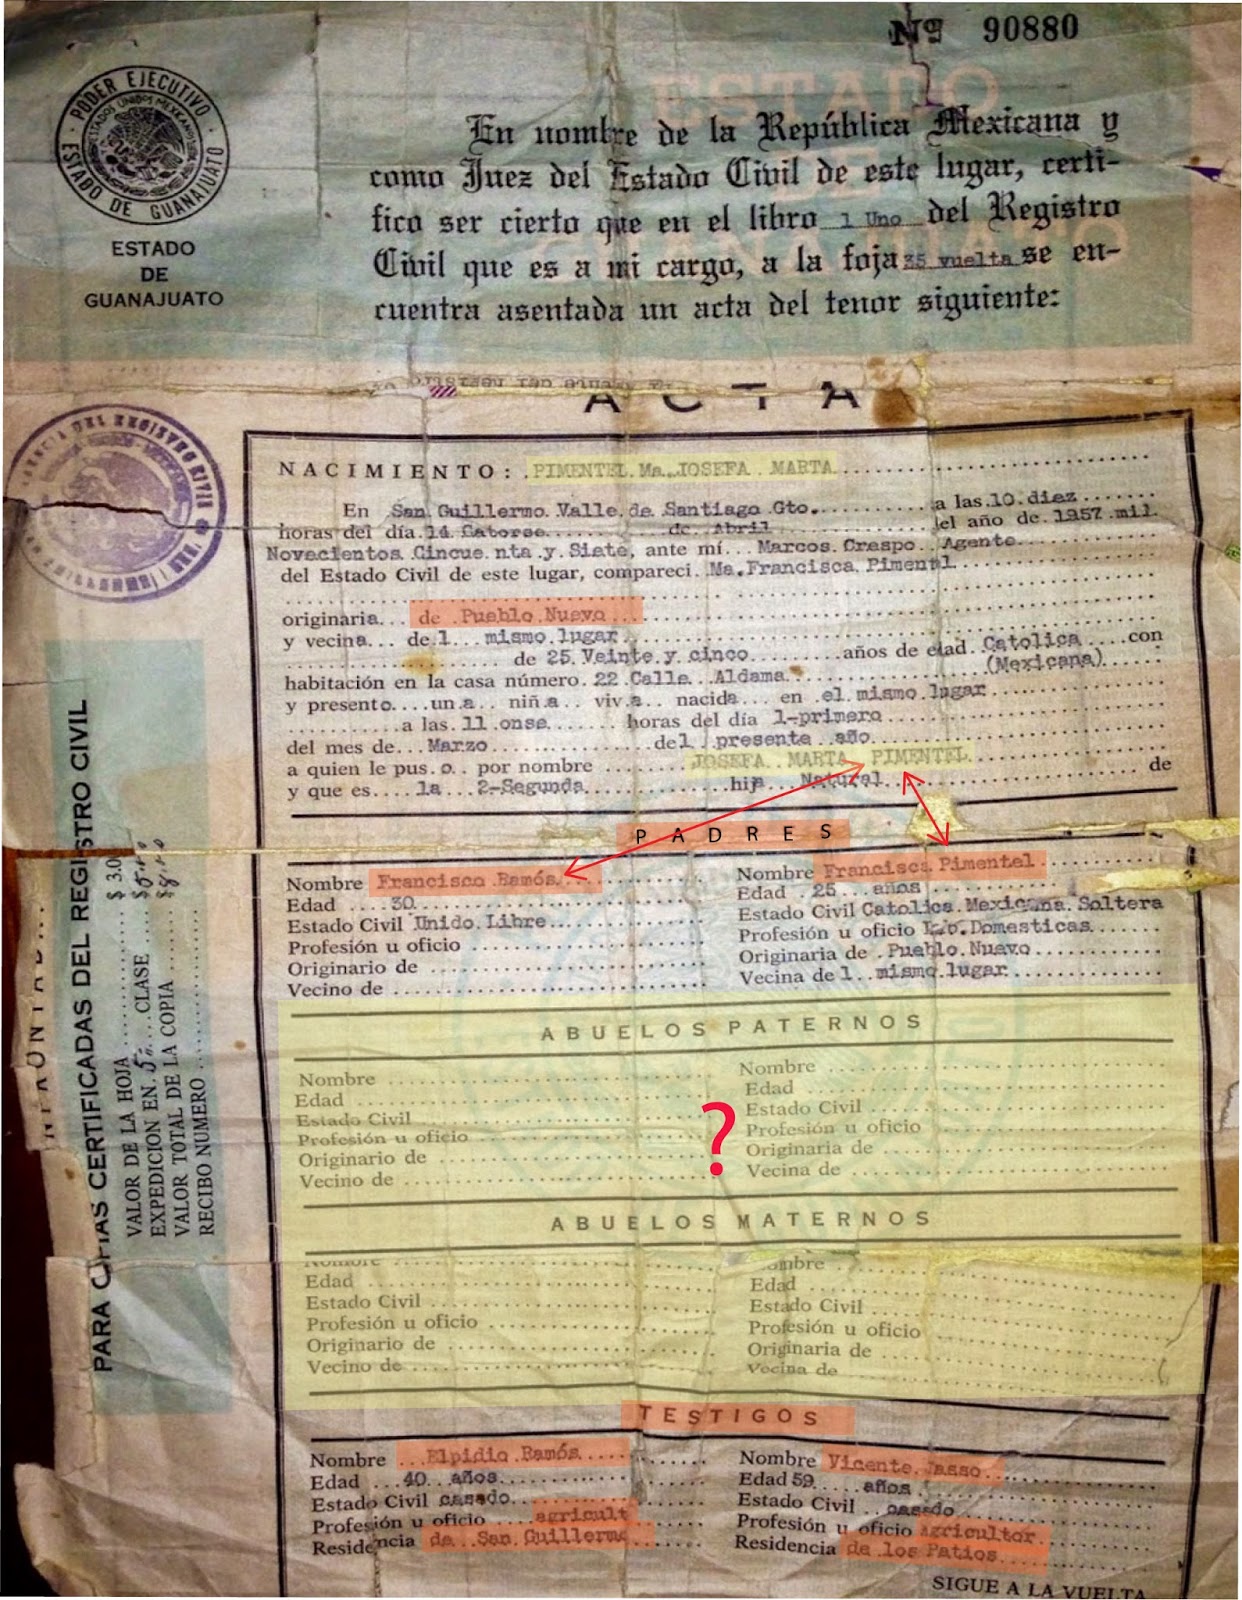 Nº 90880
PODER EJECUTIVO
ESTADOS UNIDOS MEXICANOS
ESTADO DE GUANAJUATO
ESTADO
DE
GUANAJUATO
En nombre de la República Mexicana y
como Juez del Estado Civil de este lugar, certi-
fico ser cierto que en el libro 1 Uno del Registro
Civil que es a mi cargo, a la foja 35 vuelta se en-
cuentra asentada un acta del tenor siguiente:
ESTADO
DE
GUANAJUATO
ACTA
DEL REGISTRO CIVIL
NACIMIENTO: PIMENTEL Ma. JOSEFA MARTA
En San Guillermo Valle de Santiago Gto. a las 10 diez
horas del día 14 Catorse de Abril del año de 1957 mil
Novecientos Cincue nta y Siete, ante mí Marcos Crespo Agente
del Estado Civil de este lugar, compareci Ma. Francisca Pimentel
originaria de Pueblo Nuevo
y vecina de l mismo lugar
de 25 Veinte y cinco años de edad Catolica con
(Mexicana)
habitación en la casa número 22 Calle Aldama
y presento una niña viva nacida en el mismo lugar
a las 11 onse horas del día 1-primero
del mes de Marzo del presente año
a quien le puso por nombre JOSEFA MARTA PIMENTEL
y que es la 2-Segunda hija Natural de
PADRES
Nombre Francisco Ramós
Edad 30
Estado Civil Unido Libre
Profesión u oficio
Originario de
Vecino de
Nombre Francisca Pimentel
Edad 25 años
Estado Civil Catolica Mexicana Soltera
Profesión u oficio L/o Domesticas
Originaria de Pueblo Nuevo
Vecina de l mismo lugar
ABUELOS PATERNOS
Nombre
Edad
Estado Civil
Profesión u oficio
Originario de
Vecino de
Nombre
Edad
Estado Civil
Profesión u oficio
Originaria de
Vecina de
?
ABUELOS MATERNOS
Nombre
Edad
Estado Civil
Profesión u oficio
Originario de
Vecino de
Nombre
Edad
Estado Civil
Profesión u oficio
Originaria de
Vecina de
TESTIGOS
Nombre Elpidio Ramós
Edad 40 años
Estado Civil casado
Profesión u oficio agricult
Residencia de San Guillermo
Nombre Vicente Jasso
Edad 59 años
Estado Civil casado
Profesión u oficio Agricultor
Residencia de los Patios
SIGUE A LA VUELTA
PARA COPIAS CERTIFICADAS DEL REGISTRO CIVIL
VALOR DE LA HOJA $ 3.0
EXPEDICION EN 5a CLASE
VALOR TOTAL DE LA COPIA
RECIBO NUMERO